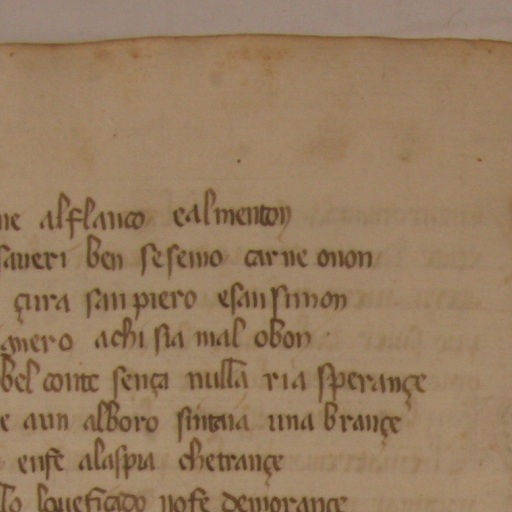 ne al flanco e al menton
saveri ben se semo carne o non
çura san piero e san simon
gnero a chi sia mal o bon
bel conte sença nulla ria sperançe
e a un alboro si n taia una brançe
en fe a la spia che trançe
lo loveficado no fe demorançe